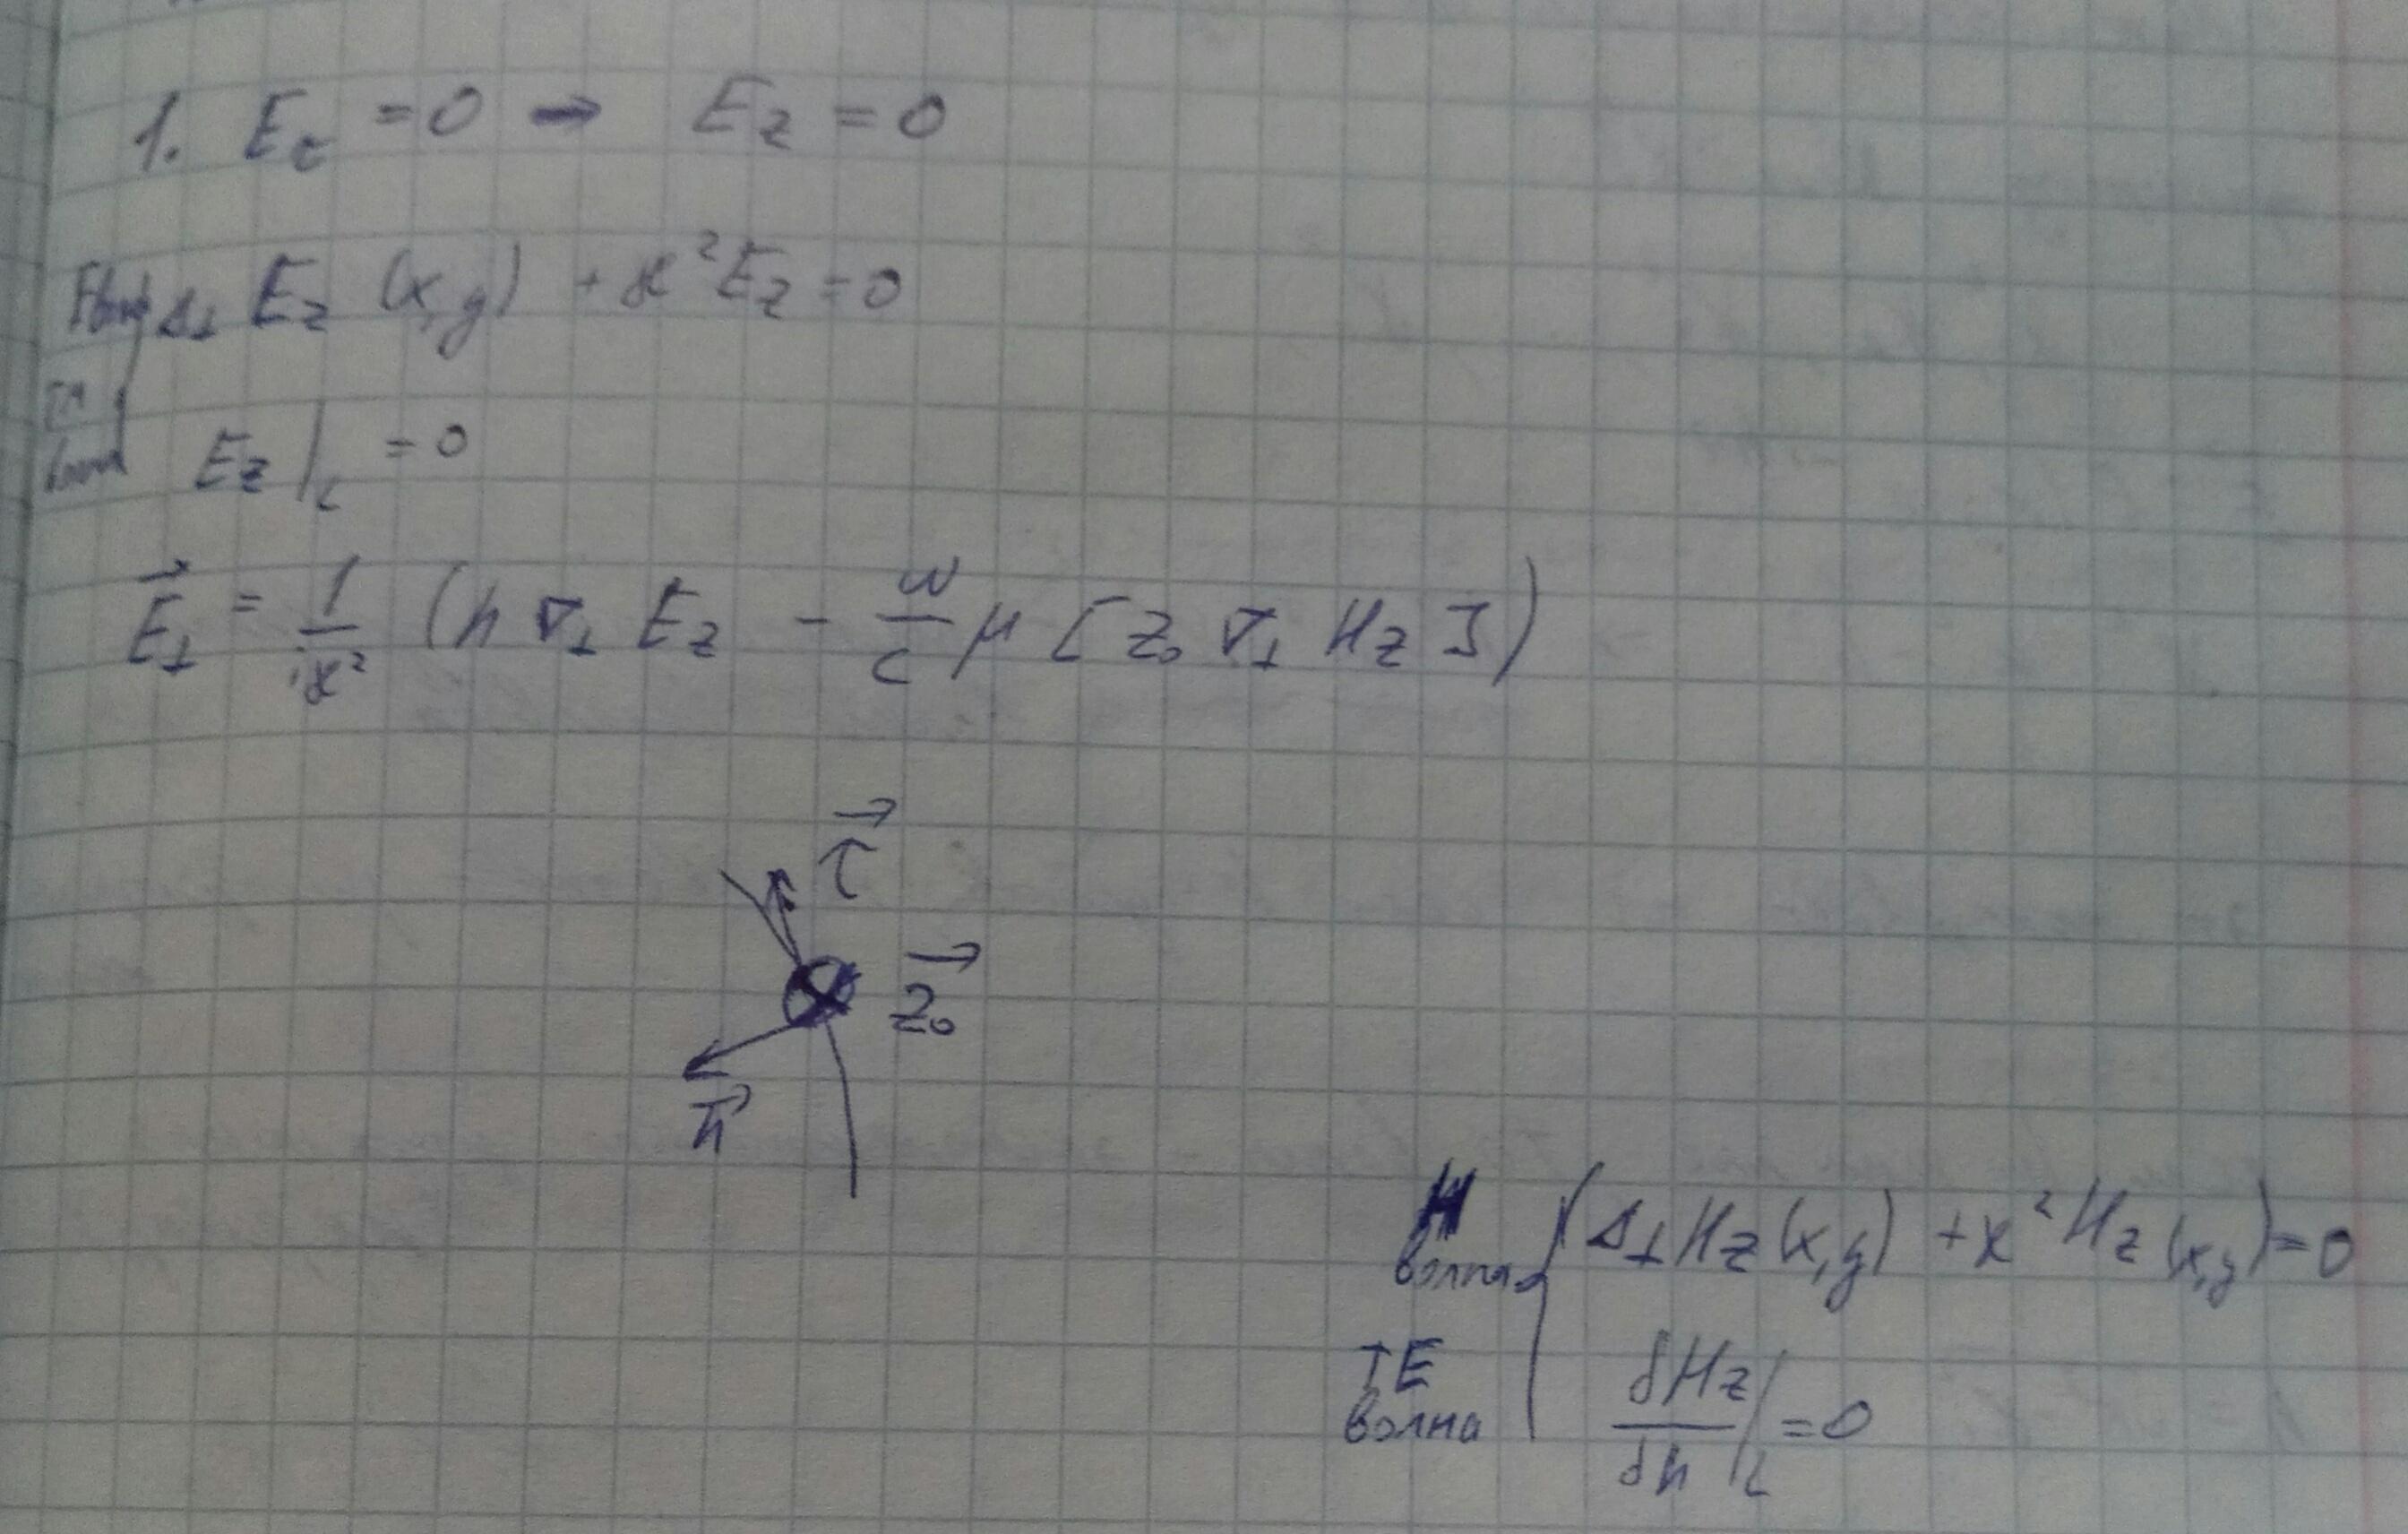 1. E_τ = 0 → E_z = 0
Δ⊥ E_z (x,y) + ϰ² E_z = 0
E_z |_L = 0
E⃗⊥ = 1/iϰ² (h ∇⊥ E_z − ω/c μ [z₀ ∇⊥ H_z])
τ⃗
z⃗₀
n⃗
H волна { Δ⊥ H_z (x,y) + ϰ² H_z (x,y) = 0
TE волна ∂H_z/∂n |_L = 0